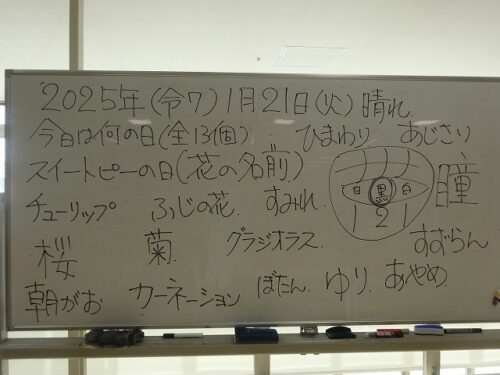 2025年(令7)1月21日(火)晴れ
今日は何の日(全13個) ひまわり あじさい
スイートピーの日(花の名前)
チューリップ ふじの花 すみれ 白 黒 白 瞳
1 2 1
桜 菊 グラジオラス すずらん
朝がお カーネーション ぼたん ゆり あやめ